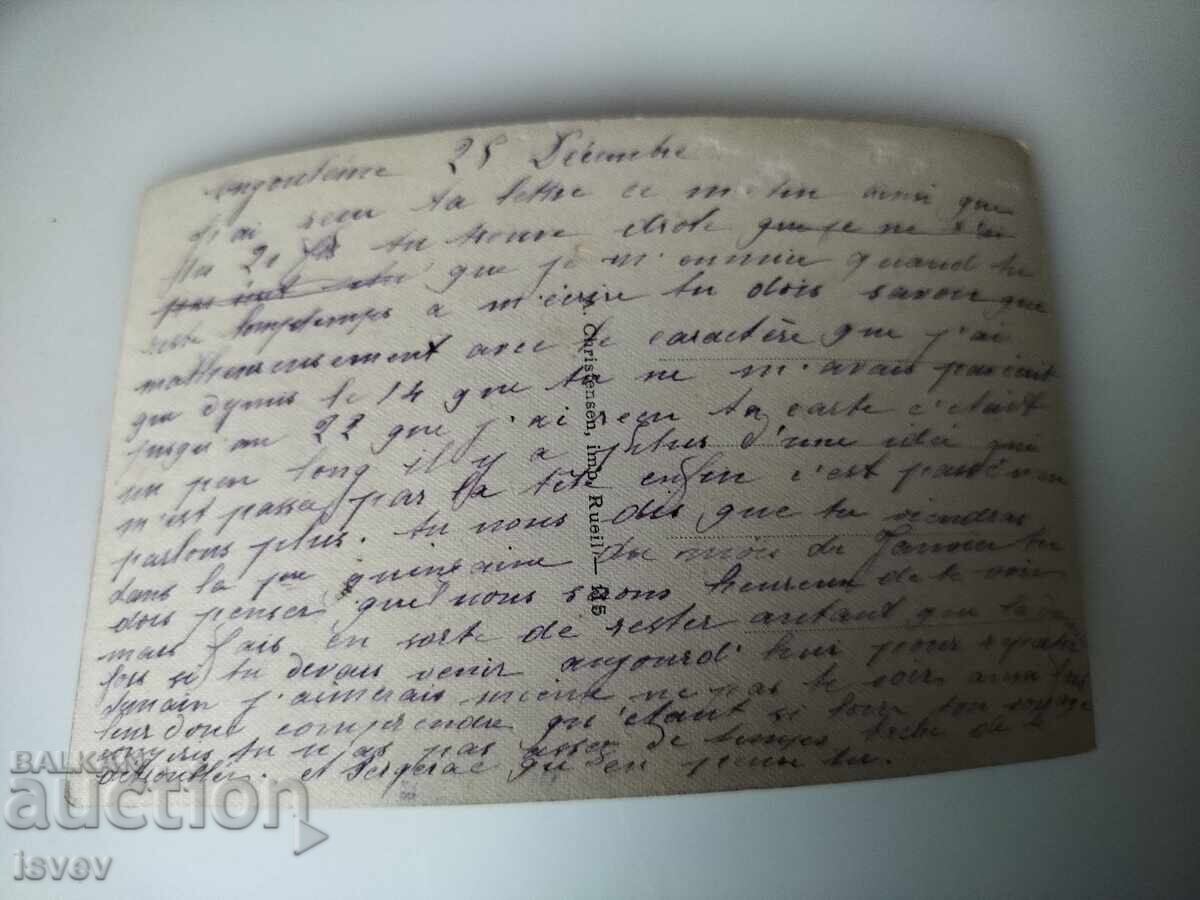 Angoulème 25 Décembre
J'ai reçu ta lettre ce matin ainsi que
tu trouve drole que je ne t'ai
que je m'ennuie quand tu
reste longtemps a m'écrire tu dois savoir que
malheureusement avec le caractère que j'ai
que depuis le 14 que tu ne m'avais pas écrit
jusqu'au 22 que j'ai reçu ta carte c'etait
un peu long il y a plus d'une idée qui
m'est passé par la tête enfin c'est passé n'en
parlons plus. tu nous dis que tu viendras
dans la quinzaine du mois de Janvier tu
dois penser que nous serons heureux de te voir
mais fais en sorte de rester autant que la
fois si tu devais venir aujourd'hui pour repartir
demain j'aimerais mieux ne pas te voir
donc comprendre qu'étant si
tu n'as pas assez de temps tache de
a Bergerac
A. Christensen, imp. Rueil. —
BALKAN
auction
isvev